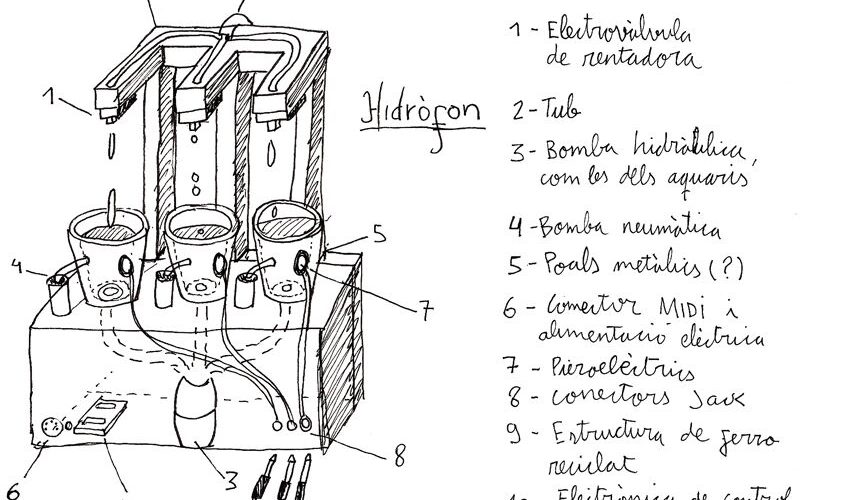 1 - Electrovàlvula
de rentadora
Hidròfon
2 - Tub
3 - Bomba hidràulica,
com les dels aquaris
4 - Bomba neumàtica
5 - Poals metàlics (?)
6 - Conector MIDI i
alimentació elèctrica
7 - Piezoelèctrics
8 - conectors Jack
9 - Estructura de ferro
reciclat
10 - Electrònica de control
1
5
4
7
8
3
6